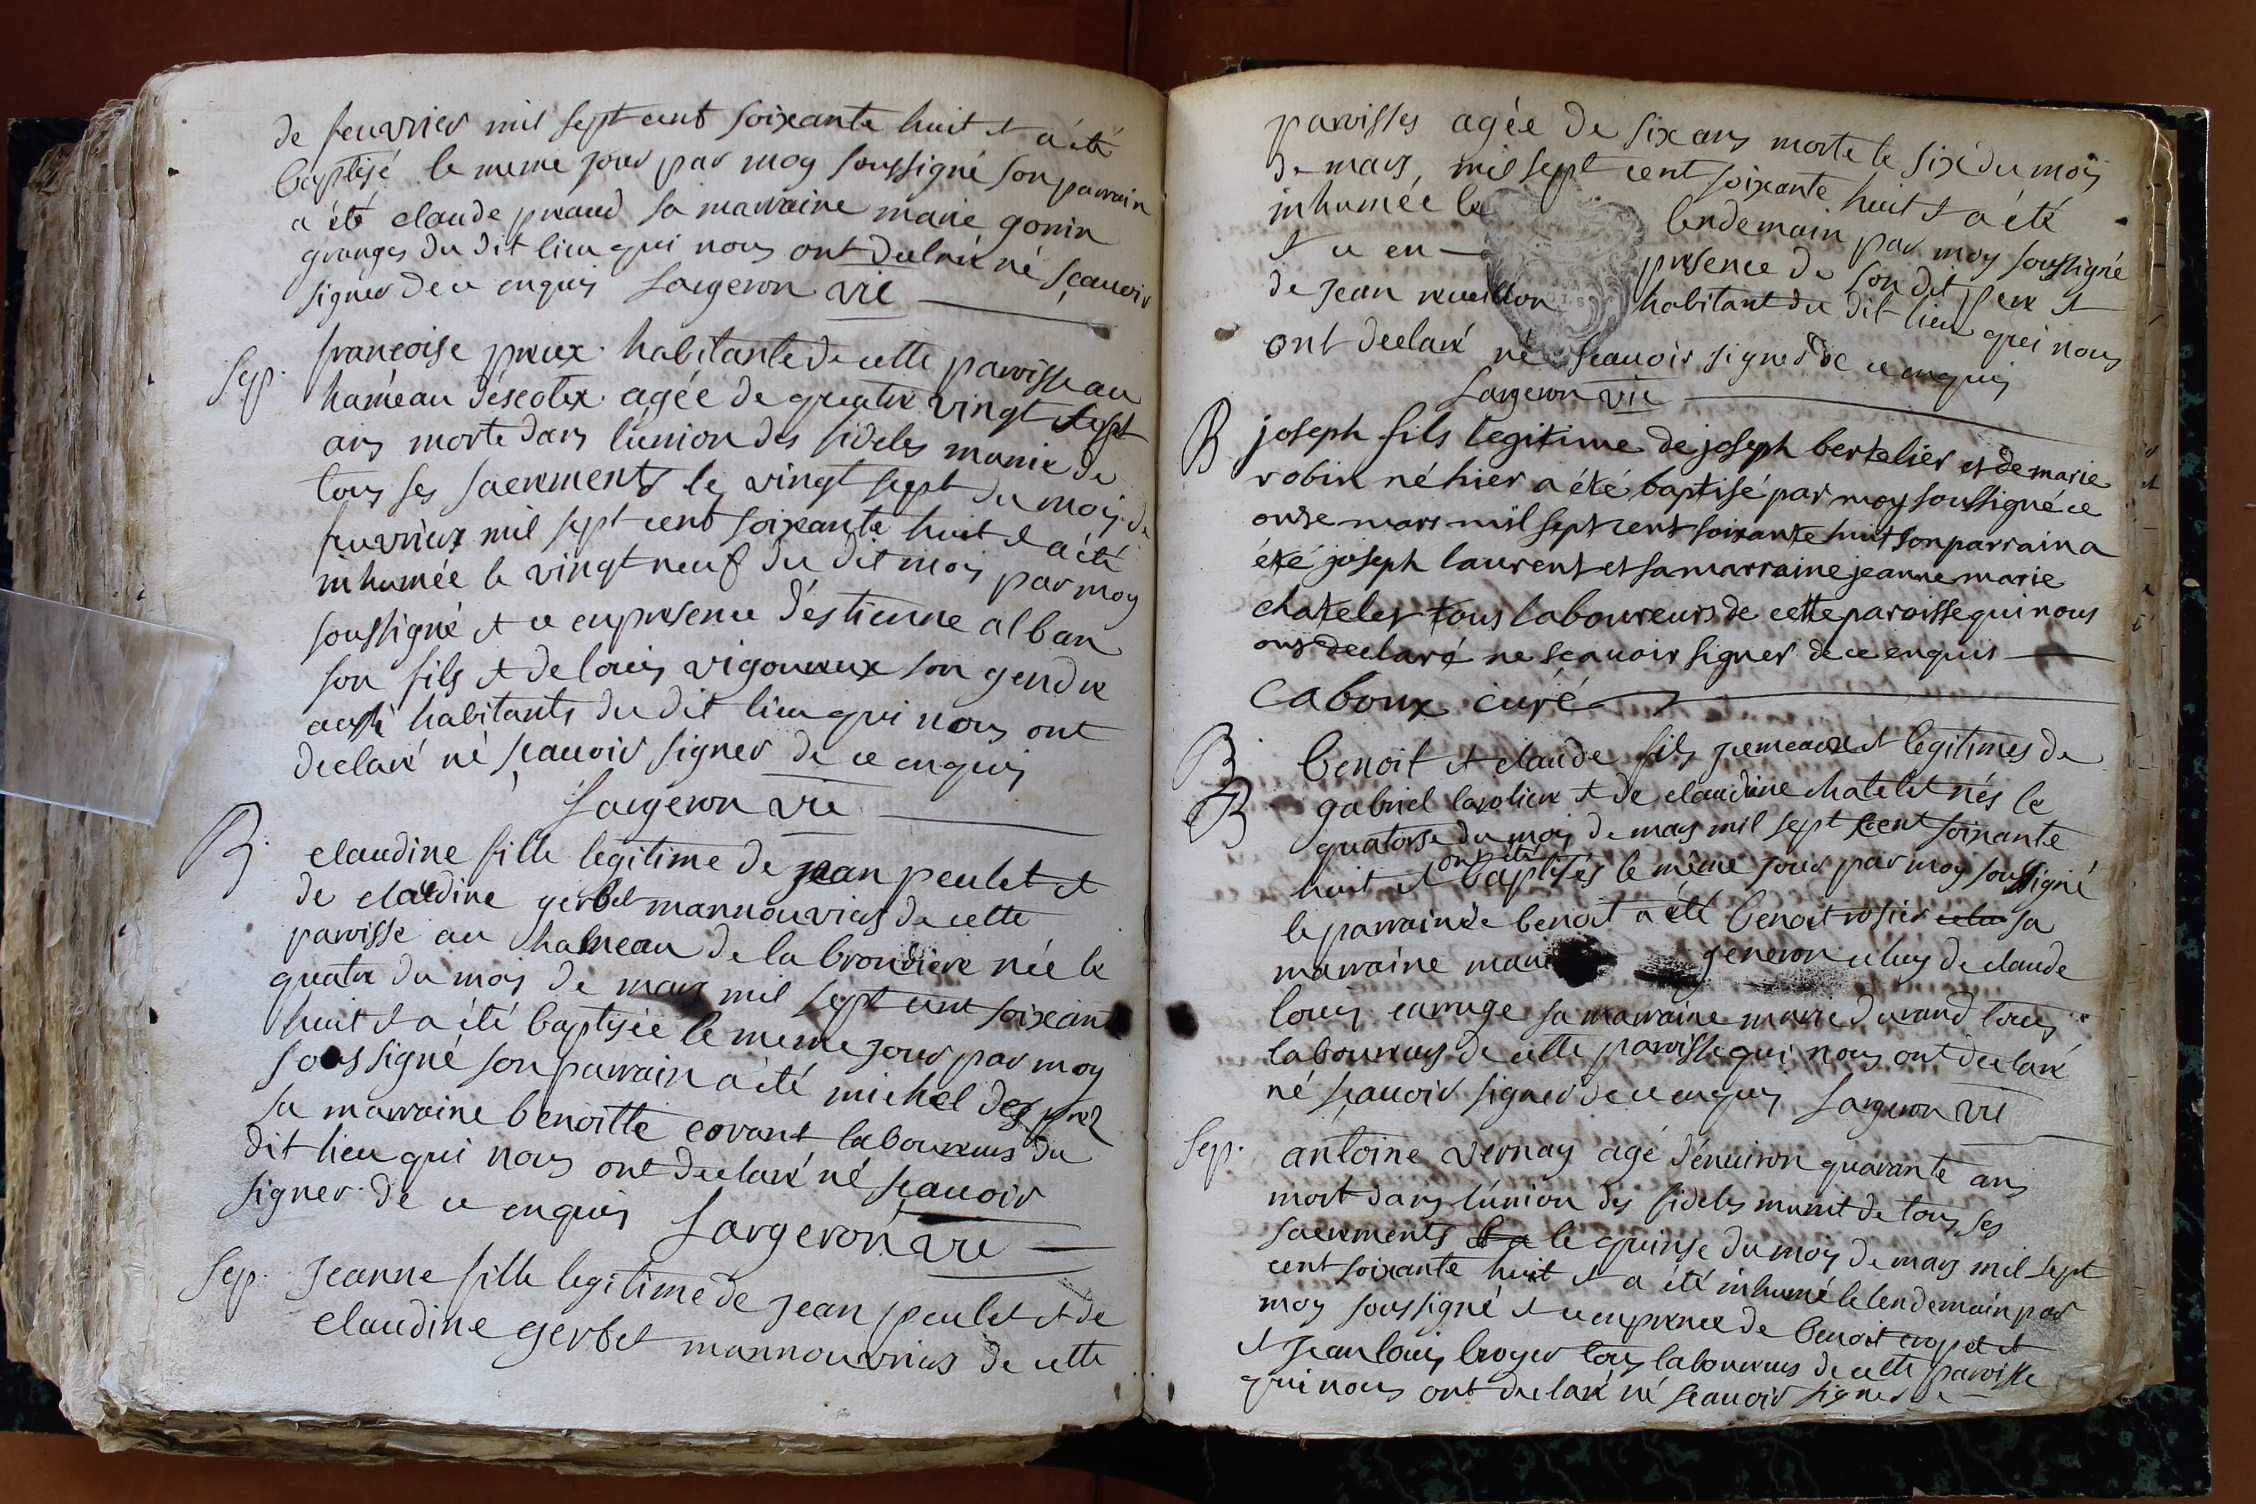 de feuvrier mil sept cent soixante huit et a été
baptisé le meme jour par moy soussigné son parrain
a été claude praud sa marraine marie gonin
granges du dit lieu qui nous ont declaré né sçauoir
signer de ce enquis Largeron vic
Sep. françoise preux habitante de cette paroisse au
haméau déscotex agée de quatre vingt sept
ans morte dans l'union des fideles munie de
tous ses sacrements le vingt sept du mois de
feuvrier mil sept cent soixante huit et a été
inhumée le vingt neuf du dit mois par moy
soussigné et ce en presence d'estienne alban
son fils et de louis vigoureux son gendre
aussi habitants du dit lieu qui nous ont
declaré né sçauoir signer de ce enquis
Largeron vic
B. claudine fille legitime de jean peulet et
de claudine gerbet mannouvriers de cette
paroisse au hameau de la brondiere née le
quatre du mois de mars mil sept cent soixante
huit et a été baptisée le meme jour par moy
soussigné son parrain a été michel des prez
sa marraine benoitte corant laboureurs du
dit lieu qui nous ont declaré né sçauoir
signer de ce enquis Largeron vic
Sep. Jeanne fille legitime de Jean peulet et de
claudine gerbet mannouvriers de cette
paroisses agée de six ans morte le six du mois
de mars, mil sept cent soixante huit et a été
inhumée le lendemain par moy soussigné
et ce en presence de son dit pere et
de Jean rueillon habitant du dit lieu qui nous
ont declaré né sçauoir signer de ce enquis
Largeron vic
B joseph fils legitime de joseph bertelier et de marie
robin né hier a été baptisé par moy soussigné ce
onze mars mil sept cent soixante huit son parrain a
été joseph laurent et sa marraine jeanne marie
chatelet tous laboureurs de cette paroisse qui nous
ont declaré ne scauoir signer de ce enquis
Caboux curé
B. benoit et claude fils jemeaux et legitimes de
B gabriel laroliere et de claudine chatelet nés le
quatorse du mois de mars mil sept cent soixante
huit et ont été baptisés le même jour par moy soussigné
le parrain de benoit a été benoit rosier celui sa
marraine marie generon celuy de claude
louis carruge sa marraine marie durand tous
laboureurs de cette paroisse qui nous ont declaré
né sçauoir signer de ce enquis Largeron vic
Sep. antoine vernay agé d'énuiron quarante ans
mort dans l'union des fideles munit de tous ses
sacrements le quinse du mois de mars mil sept
cent soixante huit et a été inhumé le lendemain par
moy soussigné et ce en presence de benoit cropet et
et Jean louis broyer tous laboureurs de cette paroisse
qui nous ont declaré né scauoir signer de